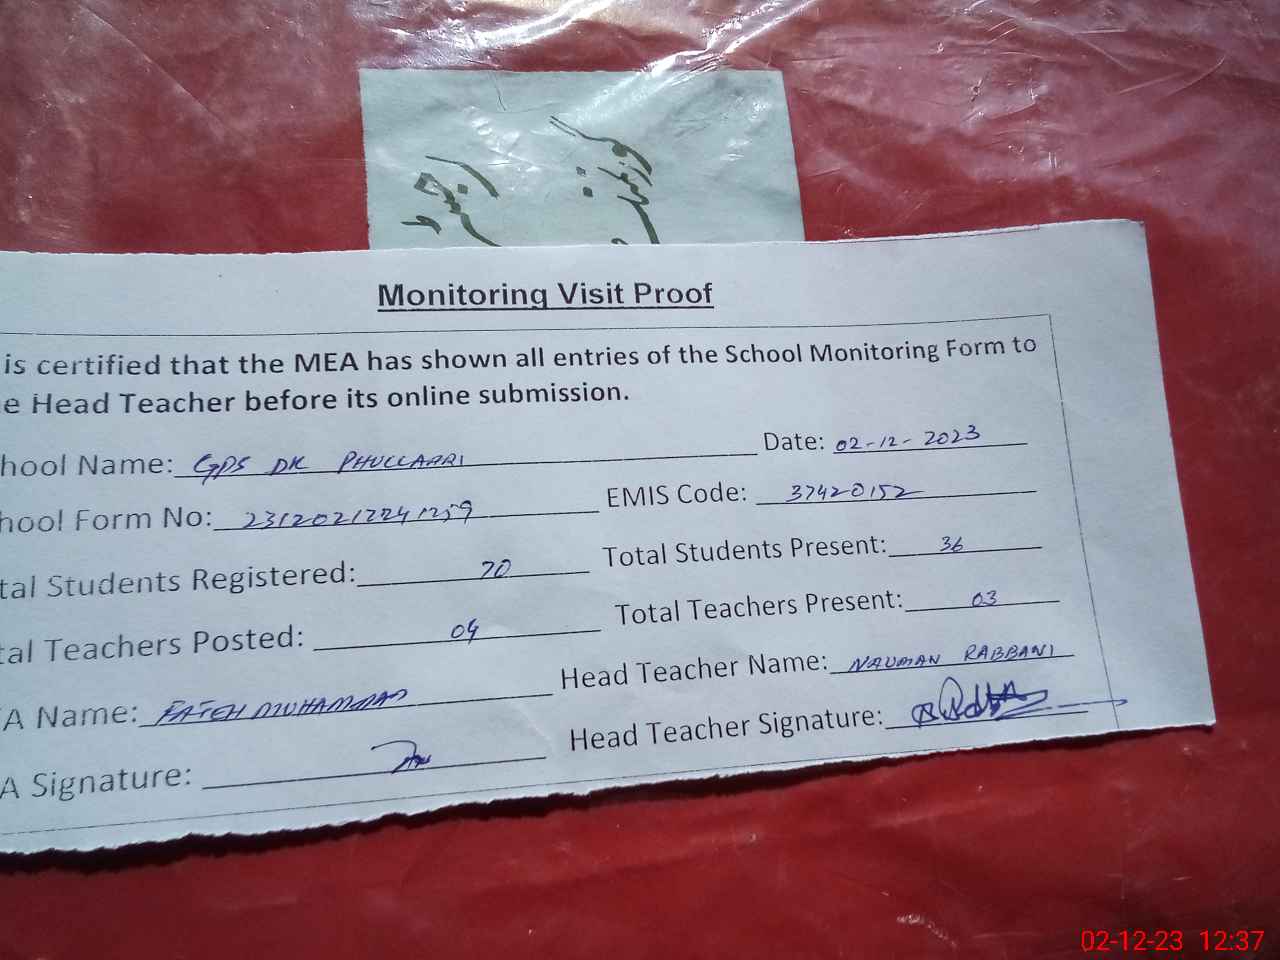 Monitoring Visit Proof
is certified that the MEA has shown all entries of the School Monitoring Form to
e Head Teacher before its online submission.
hool Name: GPS DK PHULLARRI Date: 02-12-2023
hool Form No: 23120212241259 EMIS Code: 37420152
tal Students Registered: 70 Total Students Present: 36
tal Teachers Posted: 04 Total Teachers Present: 03
A Name: FATEH MUHAMMAD Head Teacher Name: NAUMAN RABBANI
A Signature: Head Teacher Signature:
02-12-23 12:37